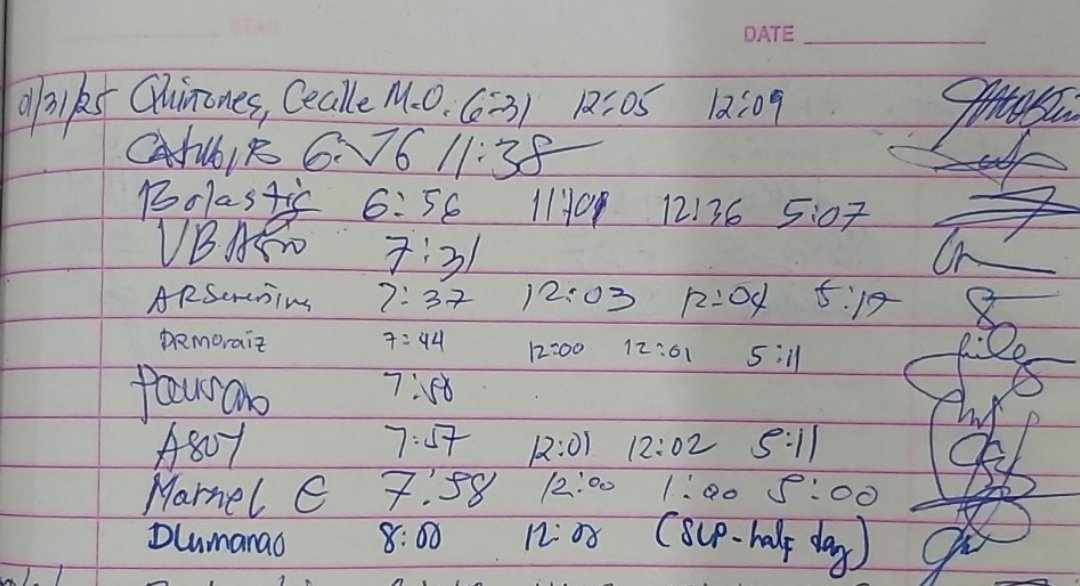 DATE
01/31/25 Quiñones, Cecille M.O. 6:31 12:05 12:09
6:56 11:38
Bolastig 6:56 11:01 12:36 5:07
7:31
7:37 12:03 12:04 5:17
DRMoraiz 7:44 12:00 12:01 5:11
7:50
ASOY 7:57 12:01 12:02 5:11
Marnel E 7:58 12:00 1:00 5:00
DLumanao 8:00 12:00 (SLP-half day)